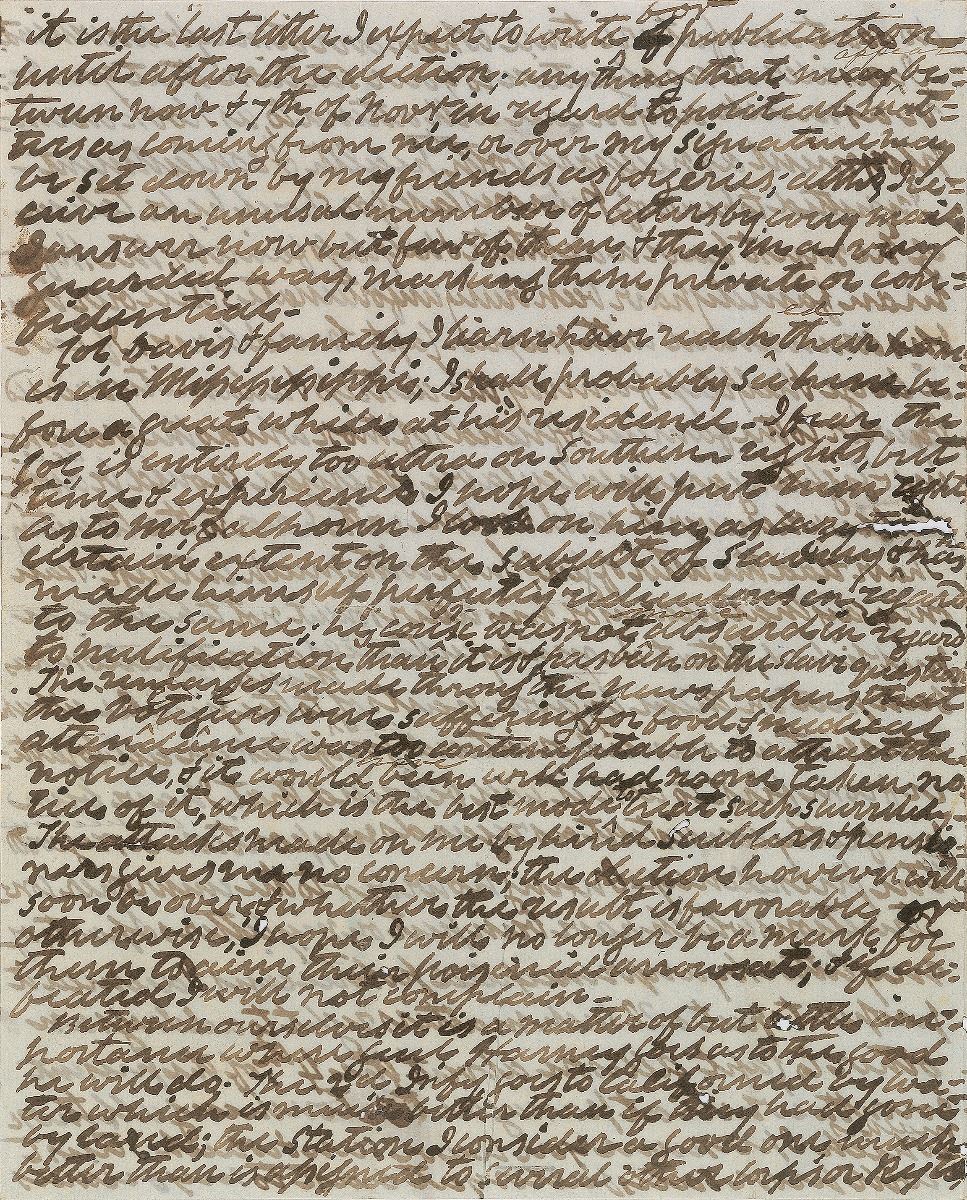 it is the last letter I expect to write for publication
until after the election, any thing that may appear be=
tween now & 7th of Novr in regard to political mat=
ters as coming from me, or over my signature may
be set down by my friends as forgeries; altho I re=
ceive an unusal number of letters by every mail
I answer now but few of them & they in a very
guarded way, marking them private or con=
fidential.
Col Davis & family I learn have reached their home
is in Missippippi; I shall probably see him be=
fore a great while at his residence. I fear the
Col. is entirely too ultra on Southern rights, but
time & experience I hope will put him right
as to Mr Calhoun I look on him as to a
certain extent on the subject of Slavery & has
made himself perfectly rediculous in regard
to the same; his course was not absurd in regard
to nullification than it is & has been on the slavery question
The remarks made through the newspapers that
the Vol were suffering for food & medical
attendance was too contemptable to attract the
notice, & it would been well had no one taken no
tice of it, which is the best mode to treat such slanders
The attacks made on me by hired Scribblers & pensio
ners gives me no concern; the election however will
soon be over & whether the result is favorable or
otherwise, I hope I will no longer be a mark for
them to aim their poisened arrows at; & if de=
feated I will not complain.
Between ourselves it is a matter of but little im=
portance where Genl Harney goes as to the good
he will do. The 2d Infy goes to California by wa=
ter which is much better than if they had gone
by land; this station I consider a good one, much
better than is to several other corps or Regts